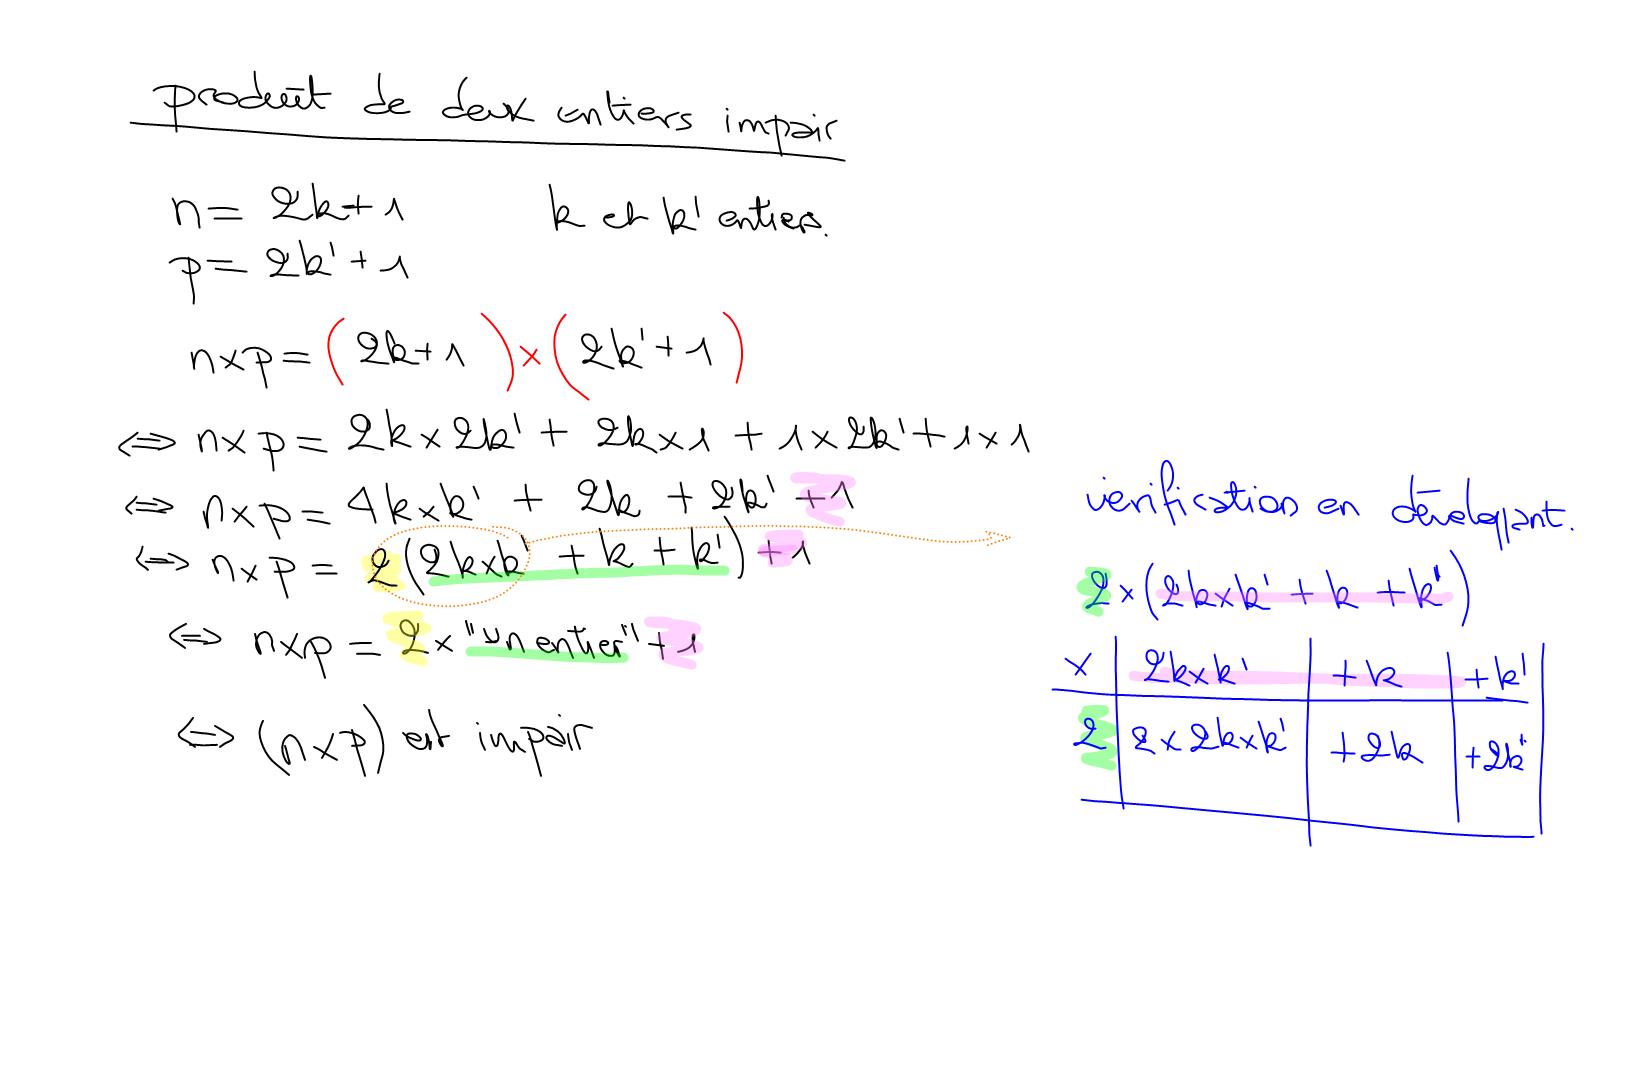 produit de deux entiers impair
n = 2k+1 k et k' entiers.
p = 2k'+1
n×p = (2k+1)×(2k'+1)
⇔ n×p = 2k×2k' + 2k×1 + 1×2k' + 1×1
⇔ n×p = 4k×k' + 2k + 2k' +1
⇔ n×p = 2(2k×k' + k + k') +1
⇔ n×p = 2×"un entier"+1
⇔ (n×p) est impair
vérification en dévelopant.
2×(2k×k' + k + k')
× 2k×k' +k +k'
2 2×2k×k' +2k +2k'